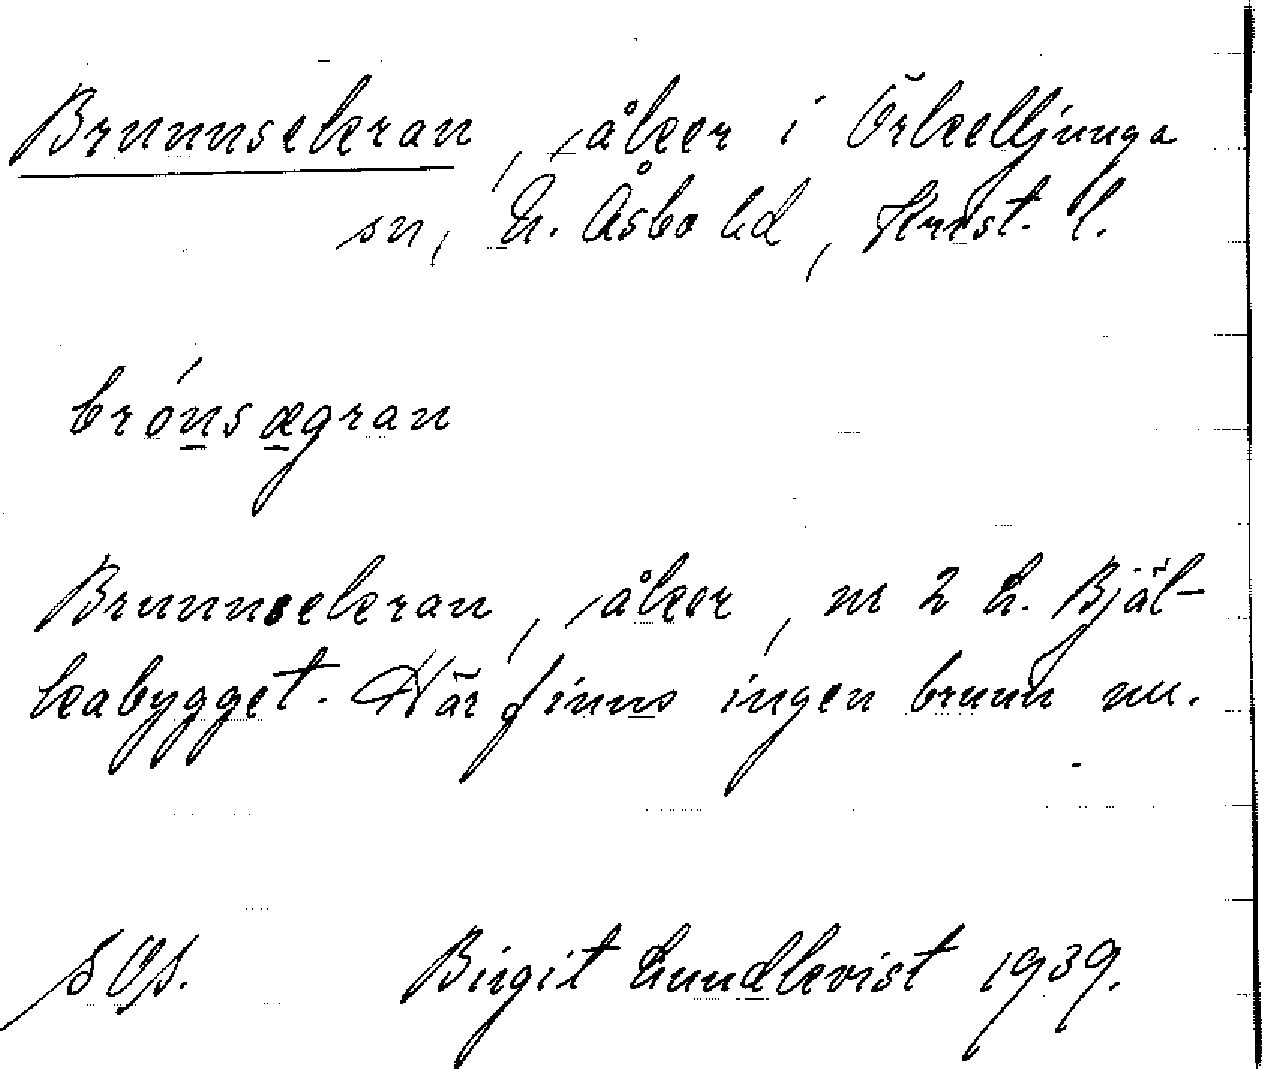 Brunnsekran, åker i Örkelljunga
sn, N. Åsbo hd, Krist. l.
brónsægran
Brunnsekran, åker, nr 2 L. Bjäl-
kabygget. Här finns ingen brunn nu.
Birgit Lundkvist 1939.